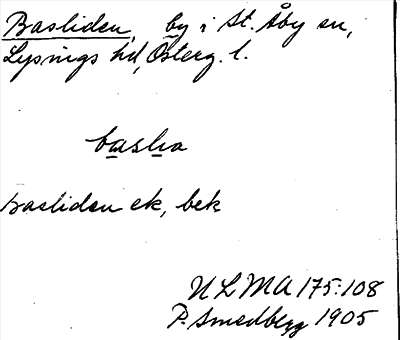 Basliden, by i St. Åby sn,
Lysings hd, Österg. l.
basha
Basliden ek, bek
ULMA 175:108
P. Smedberg 1905